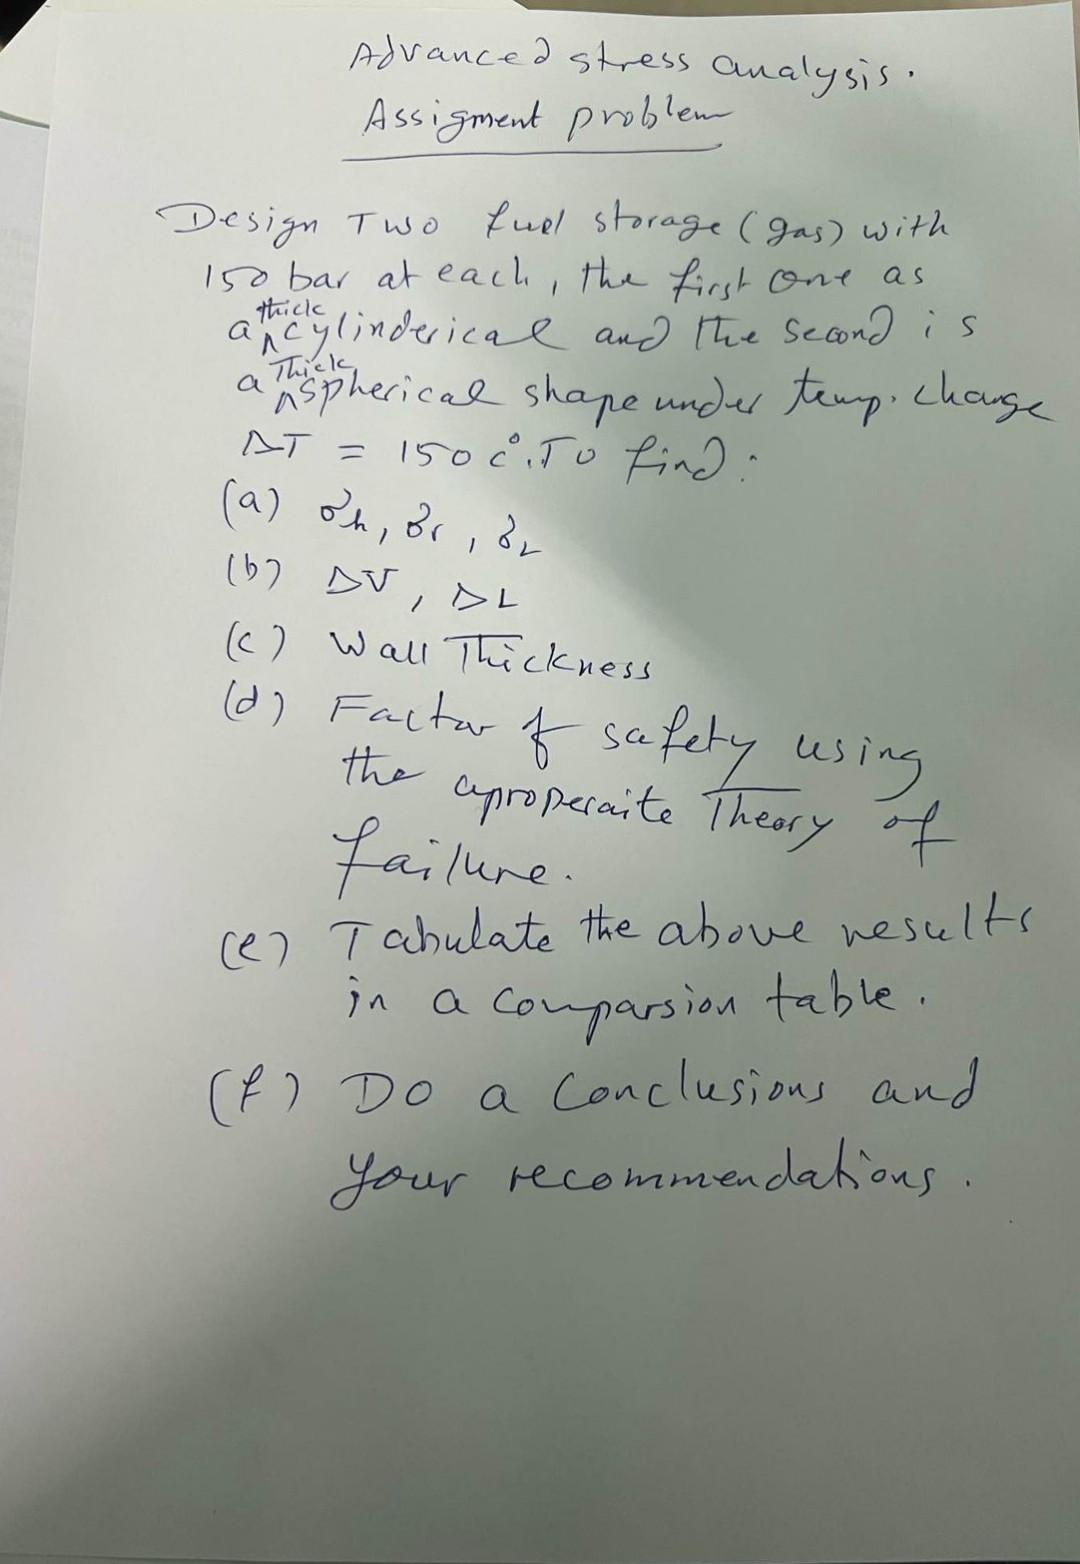 Advanced stress analysis.
Assigment problem
Design Two fuel storage (gas) with
150 bar at each, the first one as
a thick cylinderical and the second is
a Thick spherical shape under temp. change
ΔT = 150 c°. To find:
(a) σh, σr, σL
(b) ΔV, ΔL
(c) Wall Thickness
(d) Factor of safety using
the aproperaite Theory of
failure.
(e) Tabulate the above results
in a comparsion table.
(f) Do a Conclusions and
your recommendations.